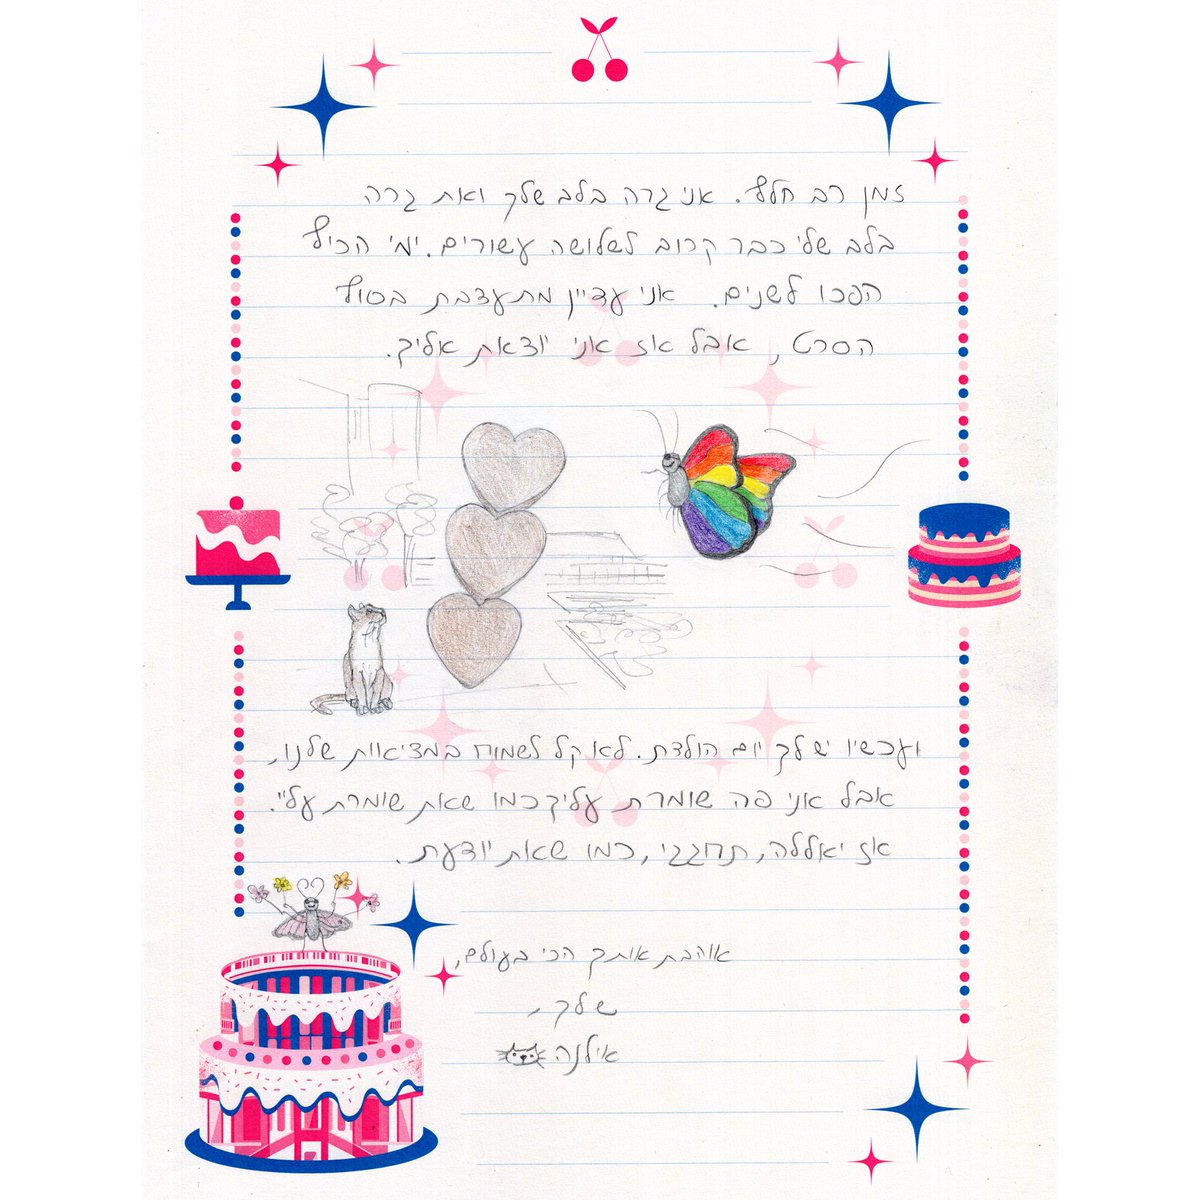 זמן רב חלף. אני גרה בלב שלך ואת גרה
בלב שלי כבר קרוב לשלושה עשורים. ימי הכיף
הפכו לשנים. אני עדיין מתעצבת בסוף
הסרט, אבל אז אני יוצאת אליך.
ועכשיו יש לך יום הולדת. לא קל לשמוח במציאות שלנו,
אבל אני פה שומרת עליך כמו שאת שומרת עליי.
אז יאללה, תחגגי, כמו שאת יודעת.
אוהבת אותך הכי בעולם,
שלך,
אילנה